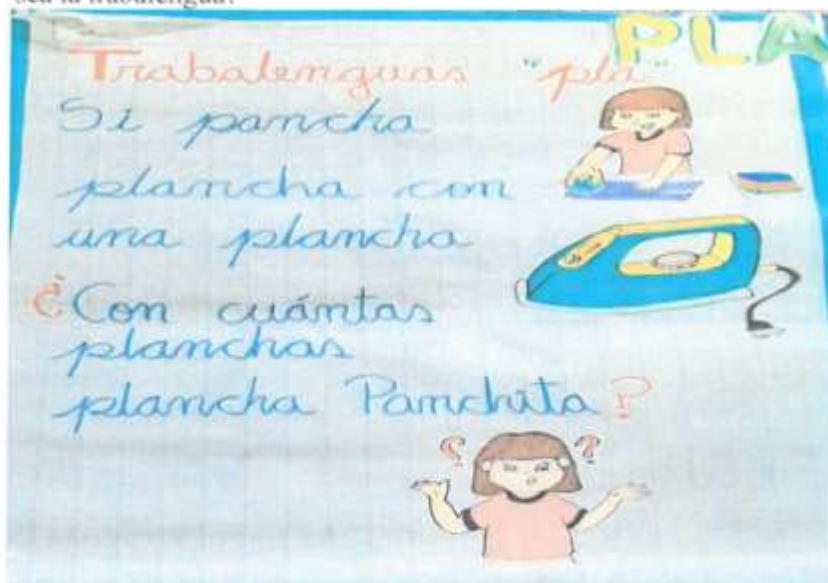 sea la trabalengua?
PLA
Trabalenguas "pla"
Si pancha
plancha con
una plancha
¿Con cuántas
planchas
plancha Panchita?